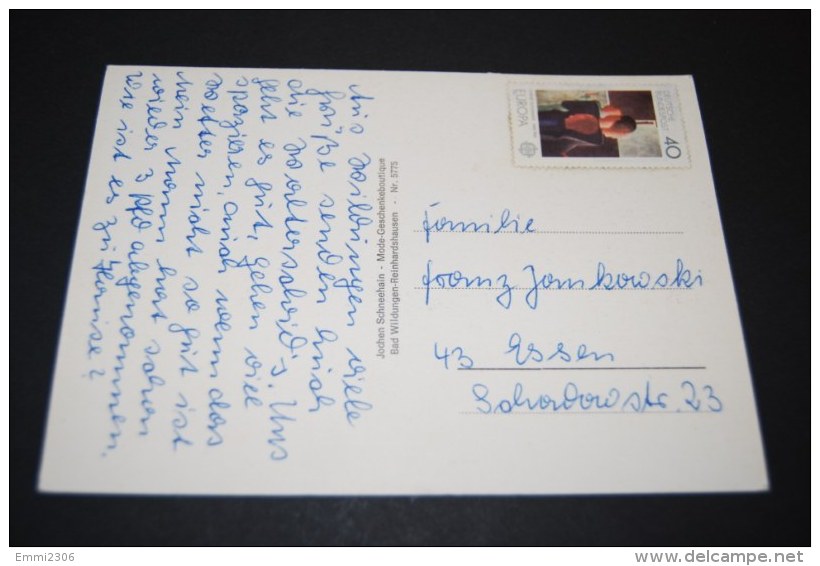 Aus Wildungen viele
Grüße senden Euch
die Waltersscheid's. Uns
geht es gut, gehen viel
spazieren, auch wenn das
Wetter nicht so gut ist
mein Mann hat schon
wieder 3 Pfd abgenommen.
Wie ist es zu Hause?
Jochen Schneehain - Mode-Geschenkeboutique
Bad Wildungen-Reinhardshausen - Nr. 5775
EUROPA
DEUTSCHE BUNDESPOST
40
Familie
Franz Jankowski
43 Essen
Schadowstr. 23
Emmi2306
www.delcampe.net